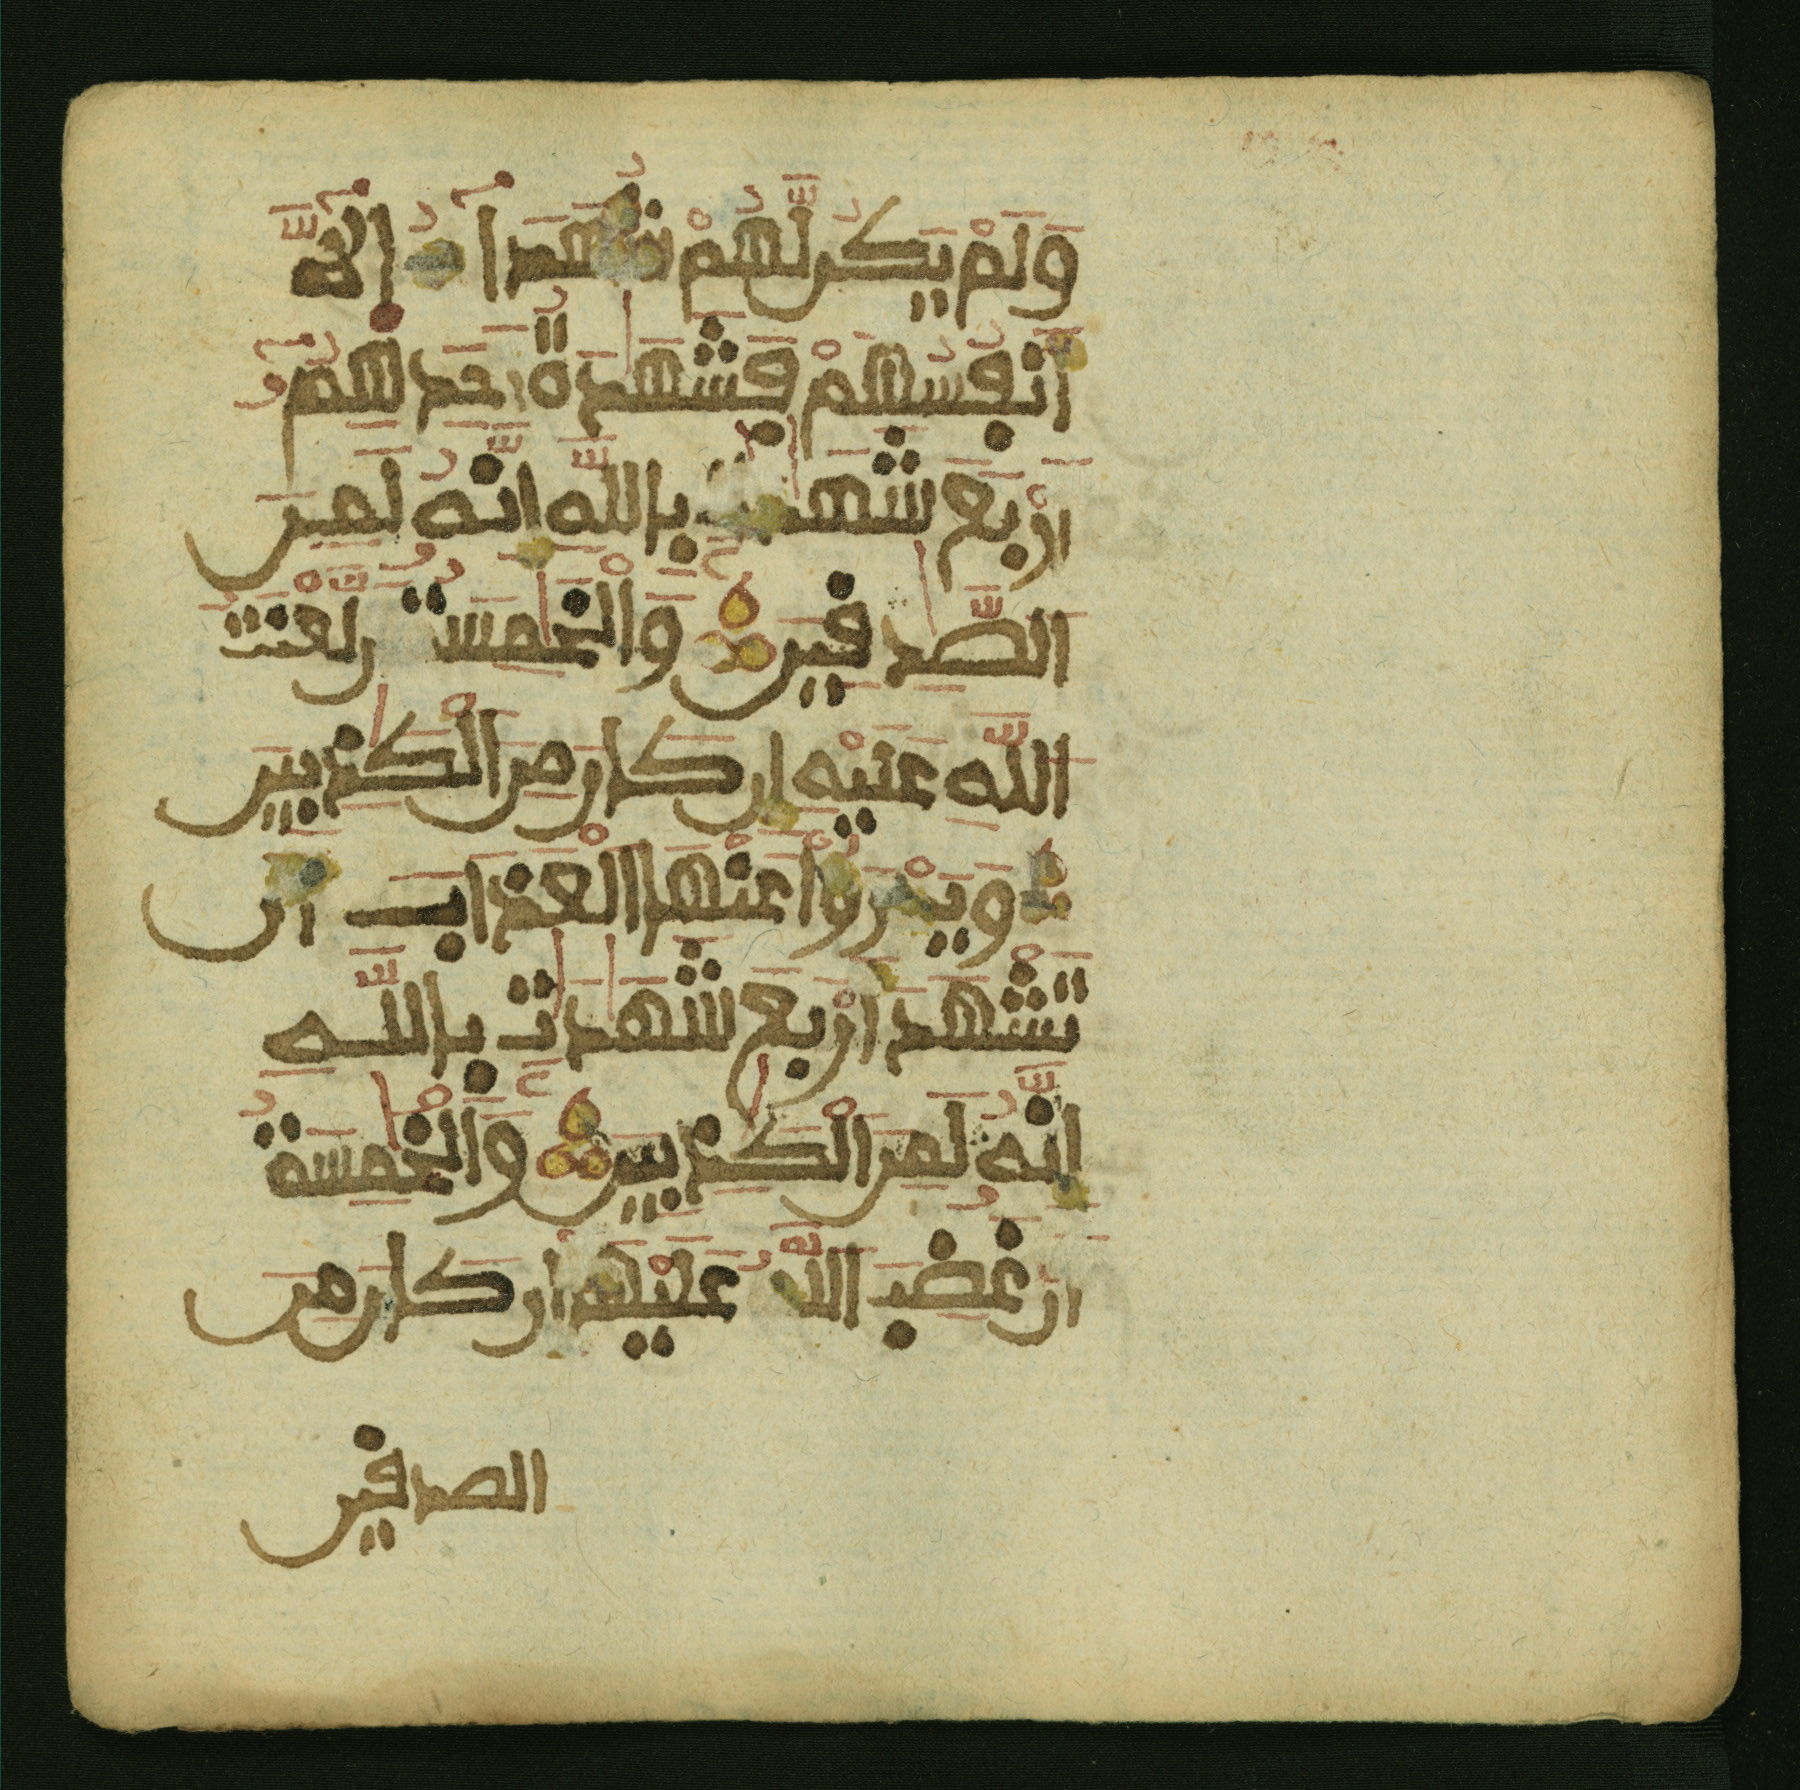 وَلَمْ يَكُن لَّهُمْ شُهَدَآءُ اِلَّآ
أَنفُسُهُمْ فَشَهَٰدَةُ أَحَدِهِمُۥٓ
أَرْبَعَ شَهَٰدَٰتٍ بِاللَّهِ إِنَّهُۥ لَمِنَ
الصَّٰدِقِينَ وَالْخَٰمِسَةُ أَن لَّعْنَتَ
اللَّهِ عَلَيْهِ إِن كَانَ مِنَ الْكَٰذِبِينَ
وَيَدْرَؤُاْ عَنْهَا الْعَذَابَ أَن
تَشْهَدَ أَرْبَعَ شَهَٰدَٰتٍ بِاللَّهِ
إِنَّهُۥ لَمِنَ الْكَٰذِبِينَ وَالْخَٰمِسَةُ
أَنْ غَضِبَ اللَّهُ عَلَيْهَا إِن كَانَ مِنَ
الصدقين